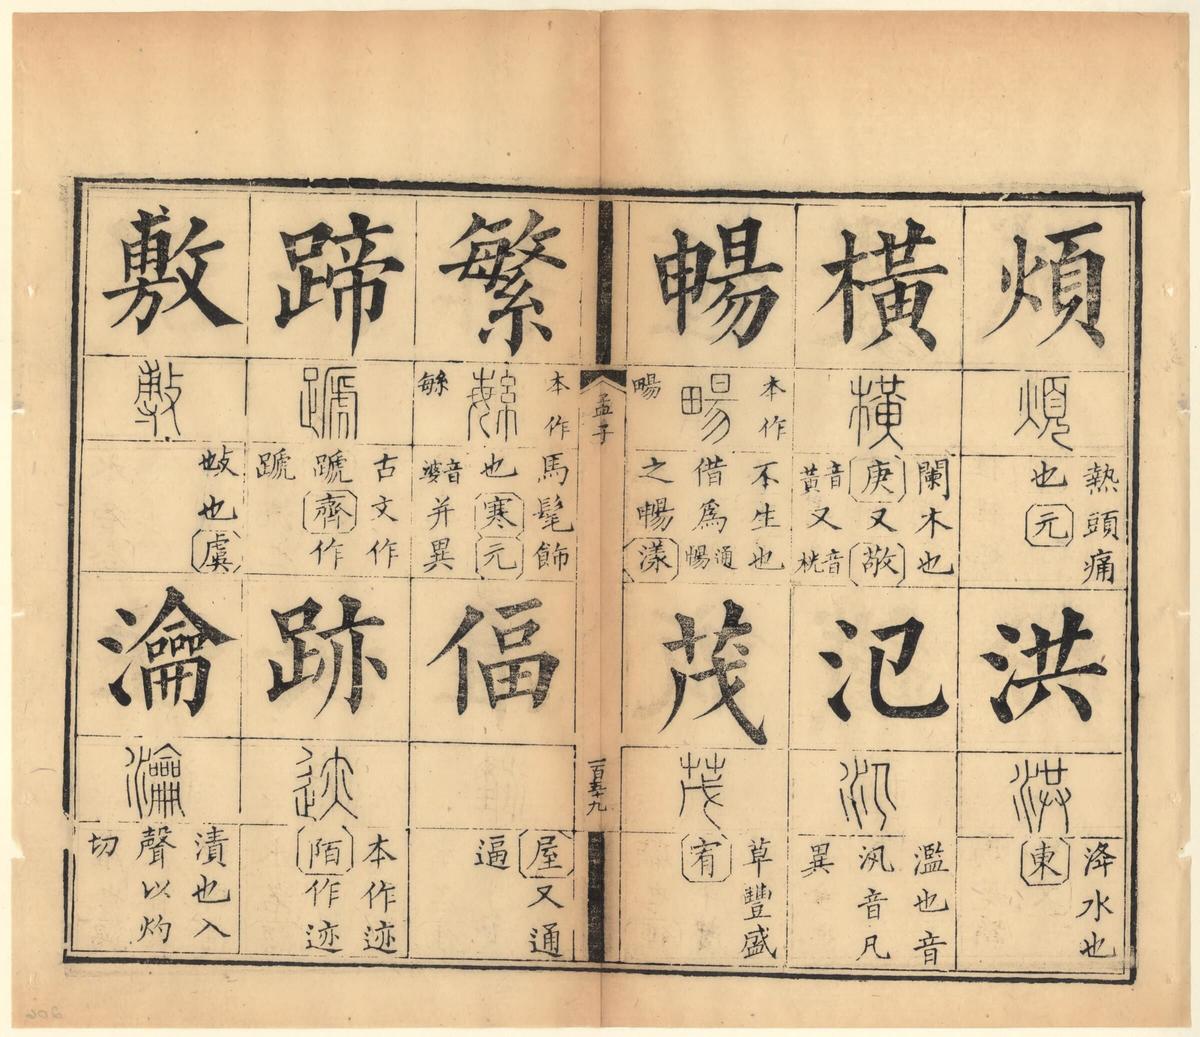 煩
煩
熱頭痛
也元
洪
洪
洚水也
東
橫
橫
闌木也
庚又敬
音黃又音桄
氾
氾
濫也音
汎音凡
異
暢
本作
畼
畼
不生也
借爲通暢
之暢漾
茂
茂
草豐盛
宥
孟子
一百五十九
繁
本作
緐
緐
馬髦飾
也寒元
音婆并異
偪
屋又通
逼
蹄
蹏
古文作
蹏齊作
蹏
跡
迹
本作迹
陌作迹
敷
敷
𢻱也虞
瀹
瀹
漬也入
聲以灼
切